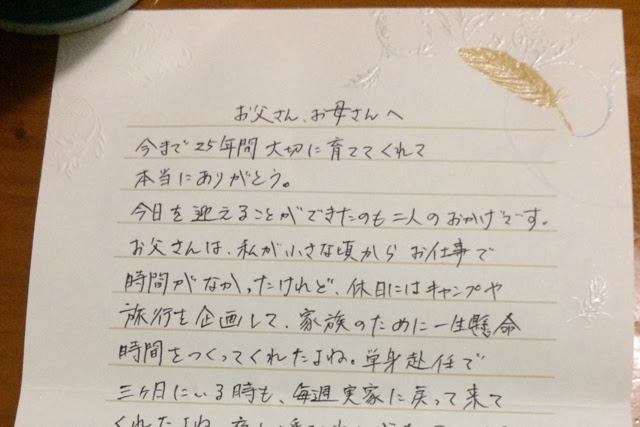 お父さん、お母さんへ
今まで25年間大切に育ててくれて
本当にありがとう。
今日を迎えることができたのも二人のおかげです。
お父さんは、私が小さな頃からお仕事で
時間がなかったけれど、休日にはキャンプや
旅行を企画して、家族のために一生懸命
時間をつくってくれたよね。単身赴任で
三ヶ日にいる時も、毎週実家に戻って来て
くれたよね。